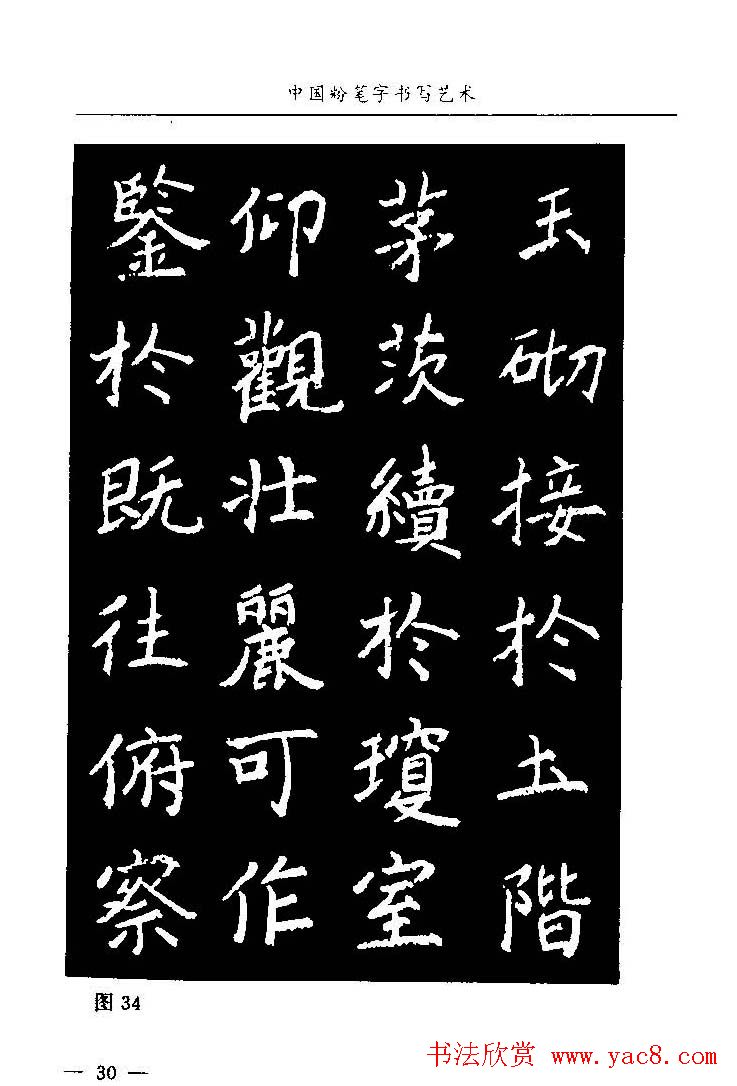 中国粉笔字书写艺术
玉砌接於土階
茅茨續於瓊室
仰觀壯麗可作
鑒於既往俯察
图 34
— 30 —
书法欣赏 www.yac8.com